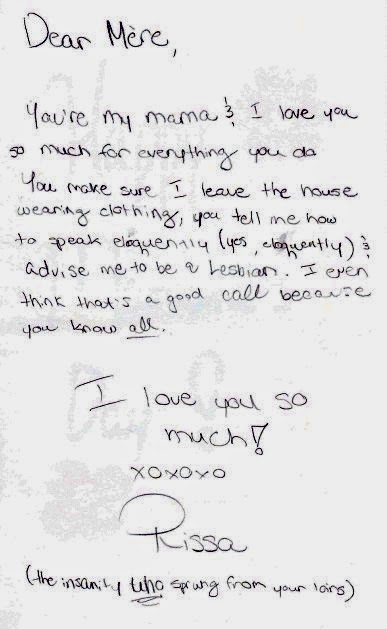 Dear Mère,
You're my mama & I love you
so much for everything you do
You make sure I leave the house
wearing clothing, you tell me how
to speak eloquently (yes, eloquently) &
advise me to be a Lesbian. I even
think that's a good call because
you know all.
I love you so
much!
xoxoxo
Rissa
(the insanity who sprung from your loins)